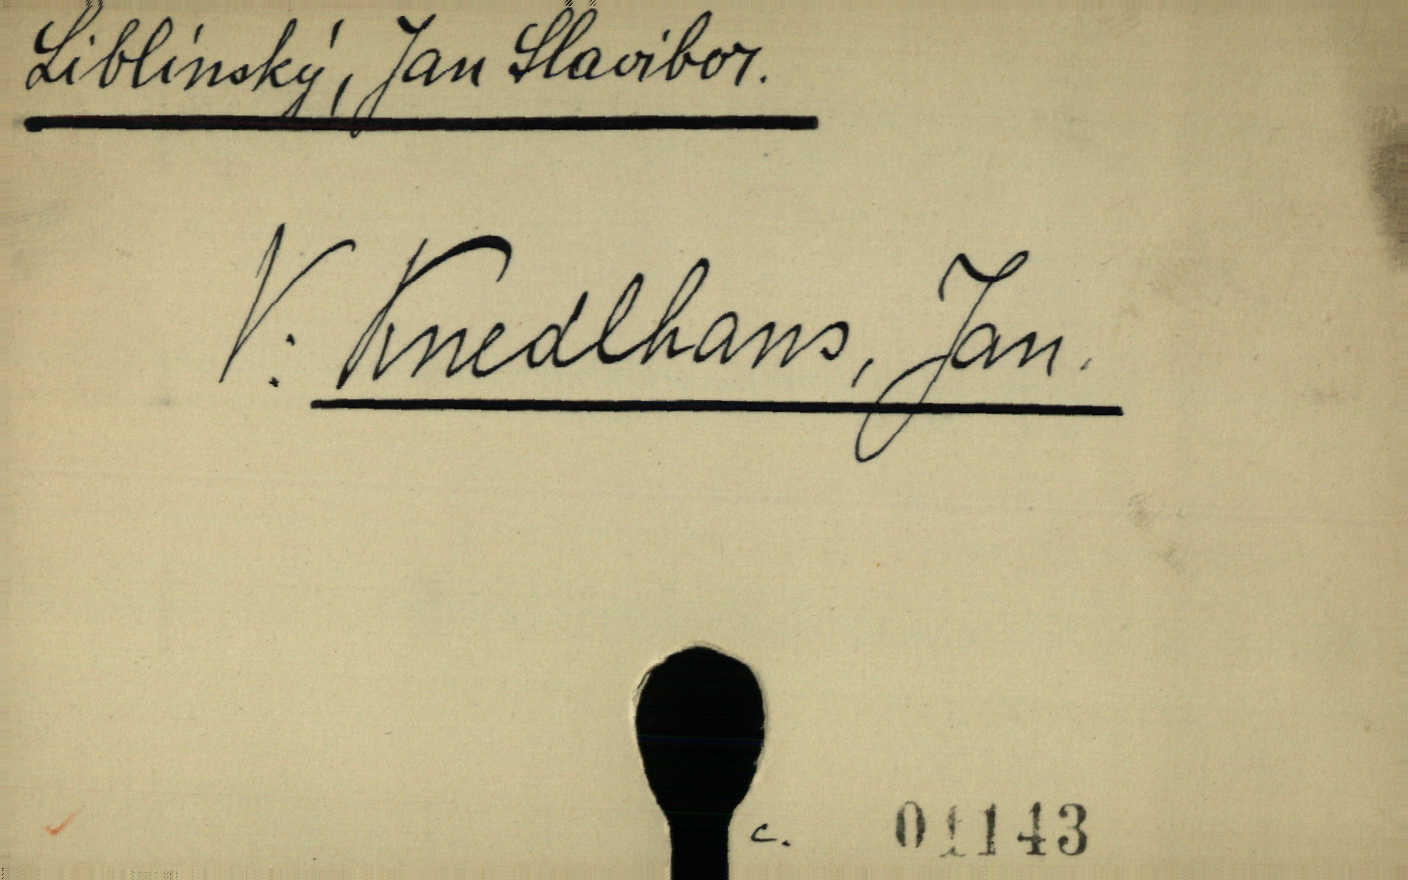 Liblínský, Jan Slavibor.
V: Knedlhans, Jan.
c. 01143